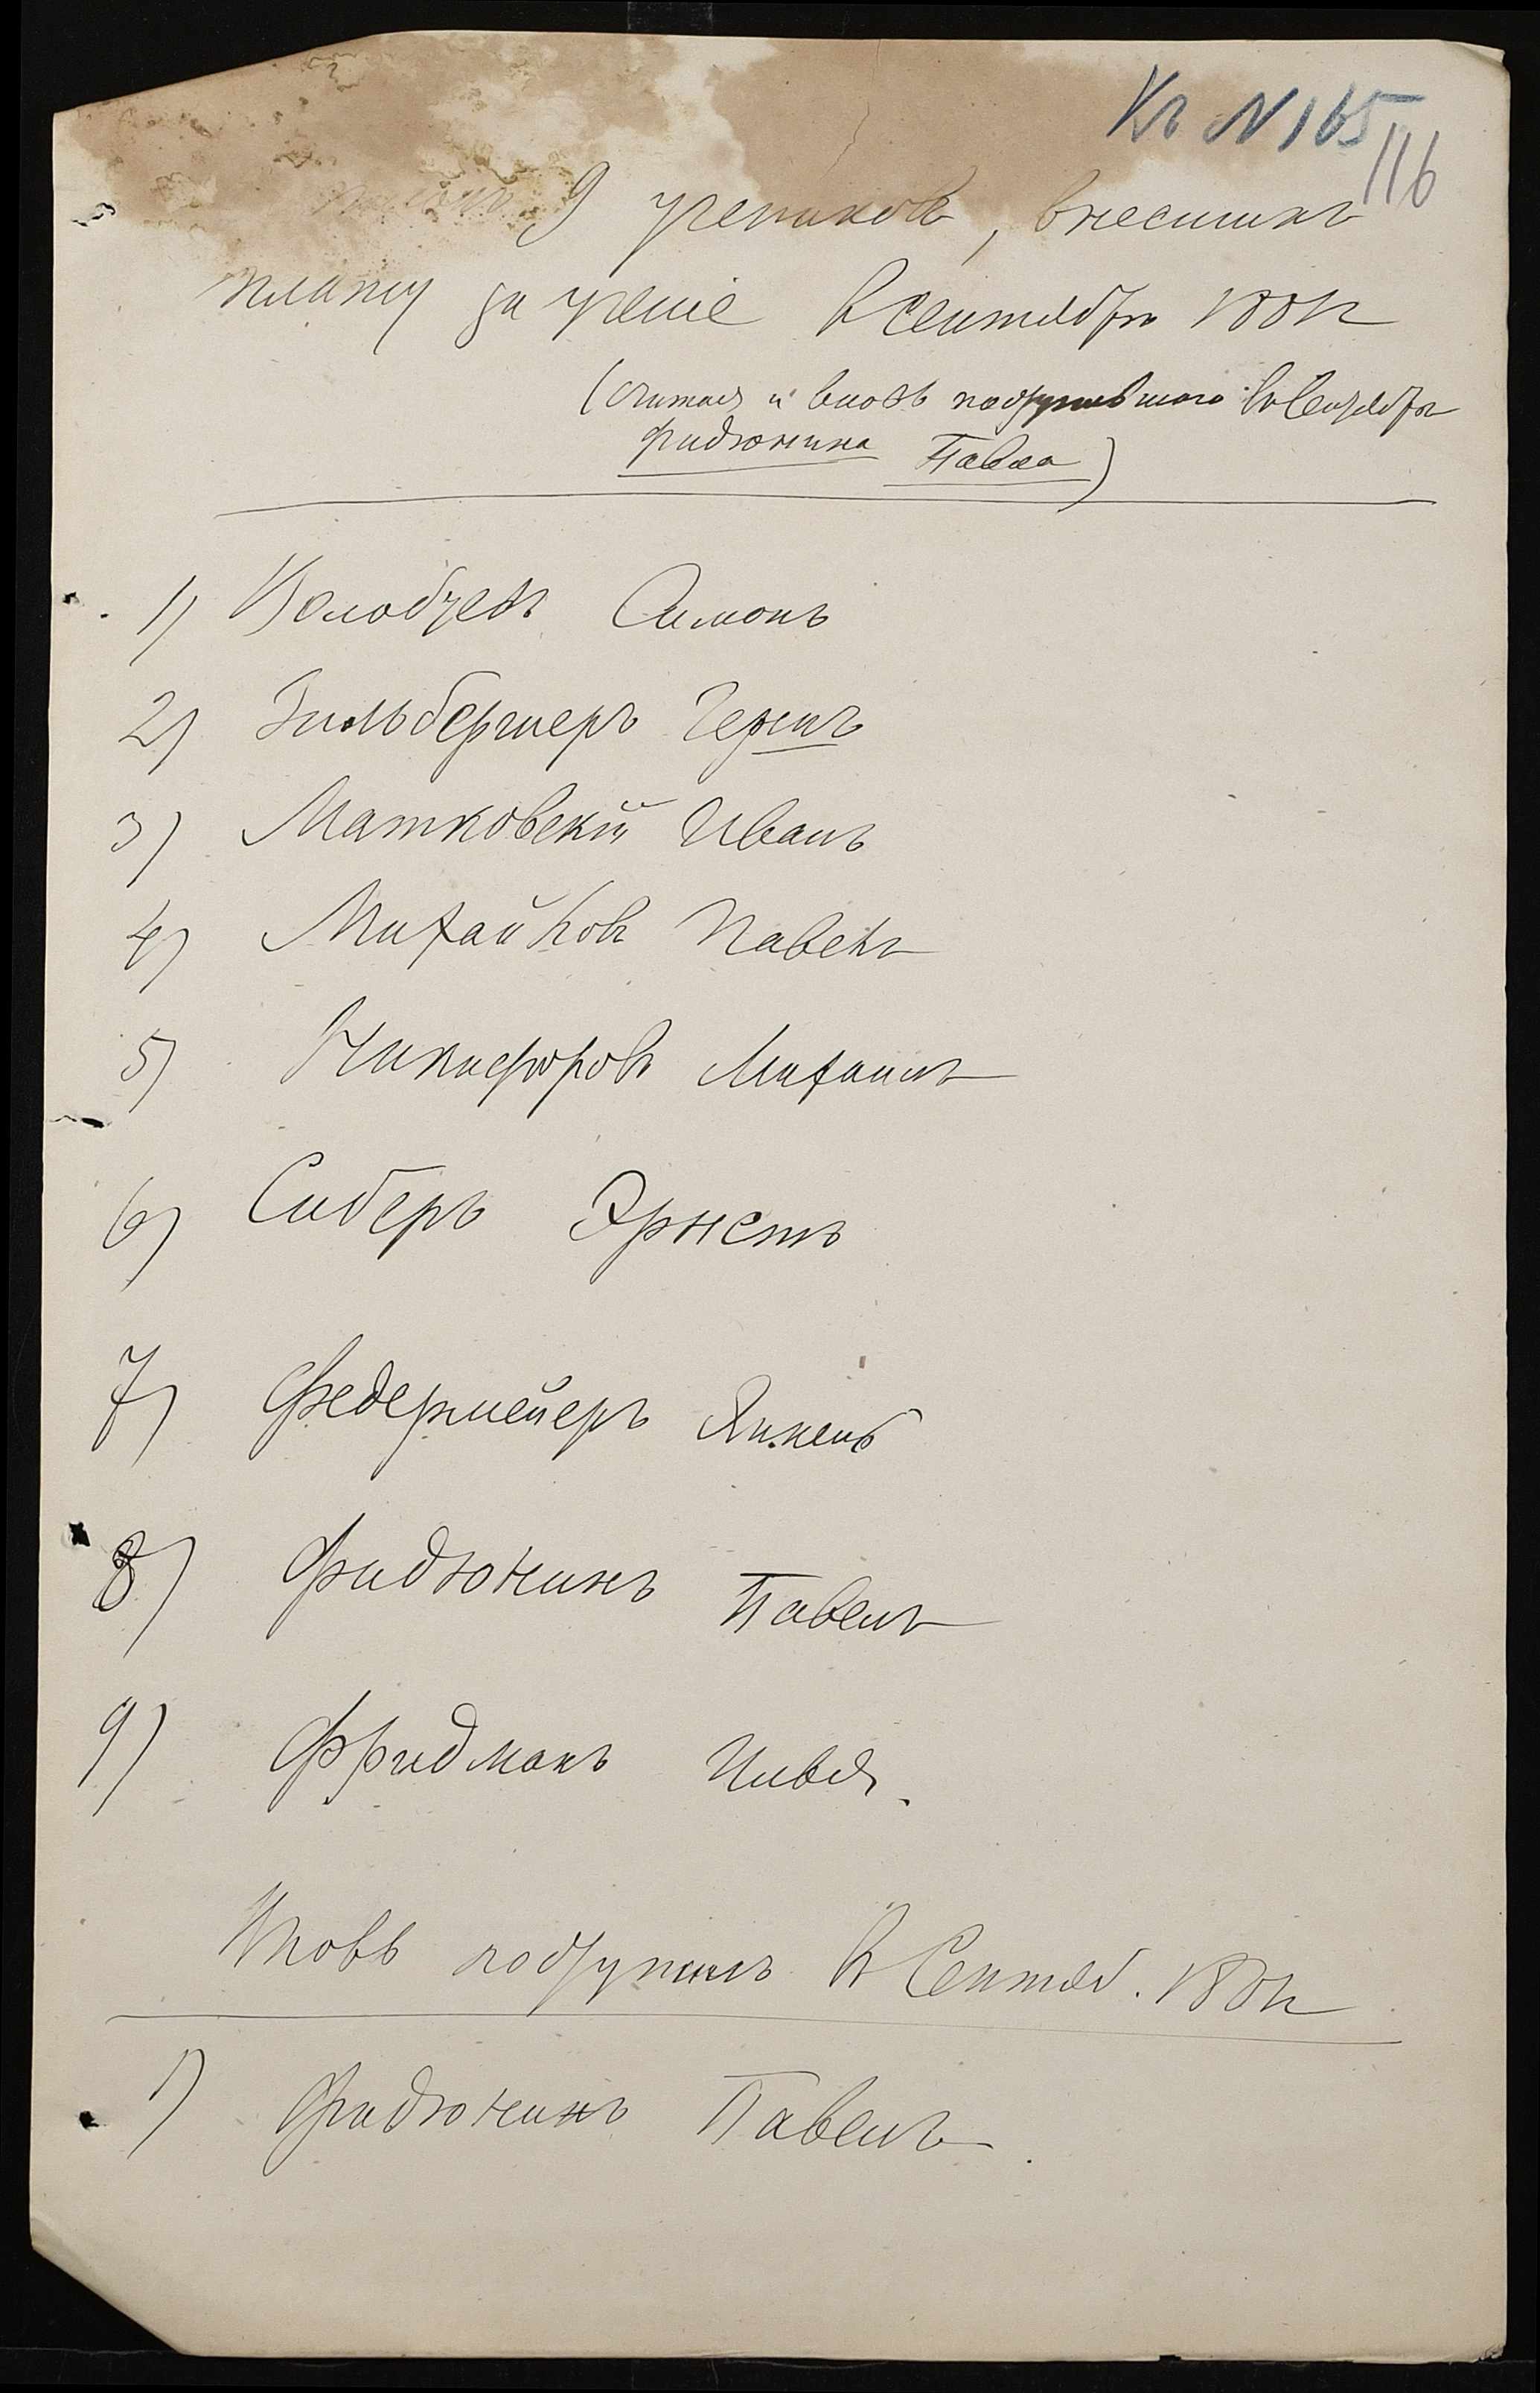 Къ N 165
116
9 учениковъ, внесшихъ
плату за ученіе въ Сентябрѣ 188
(считая и вновь поступившаго въ Сентябрѣ
Фидюнина Павла)
1) Волобуевъ Симонъ
2) Зильбермеръ Герцъ
3) Матковскій Иванъ
4) Михайловъ Павелъ
5) Никифоровъ Михаилъ
6) Сиберъ Эрнестъ
7) Федермейеръ Янкель
8) Фидюнинъ Павелъ
9) Фридманъ
Вновь поступилъ въ Сентяб. 188
1) Фидюнинъ Павелъ.